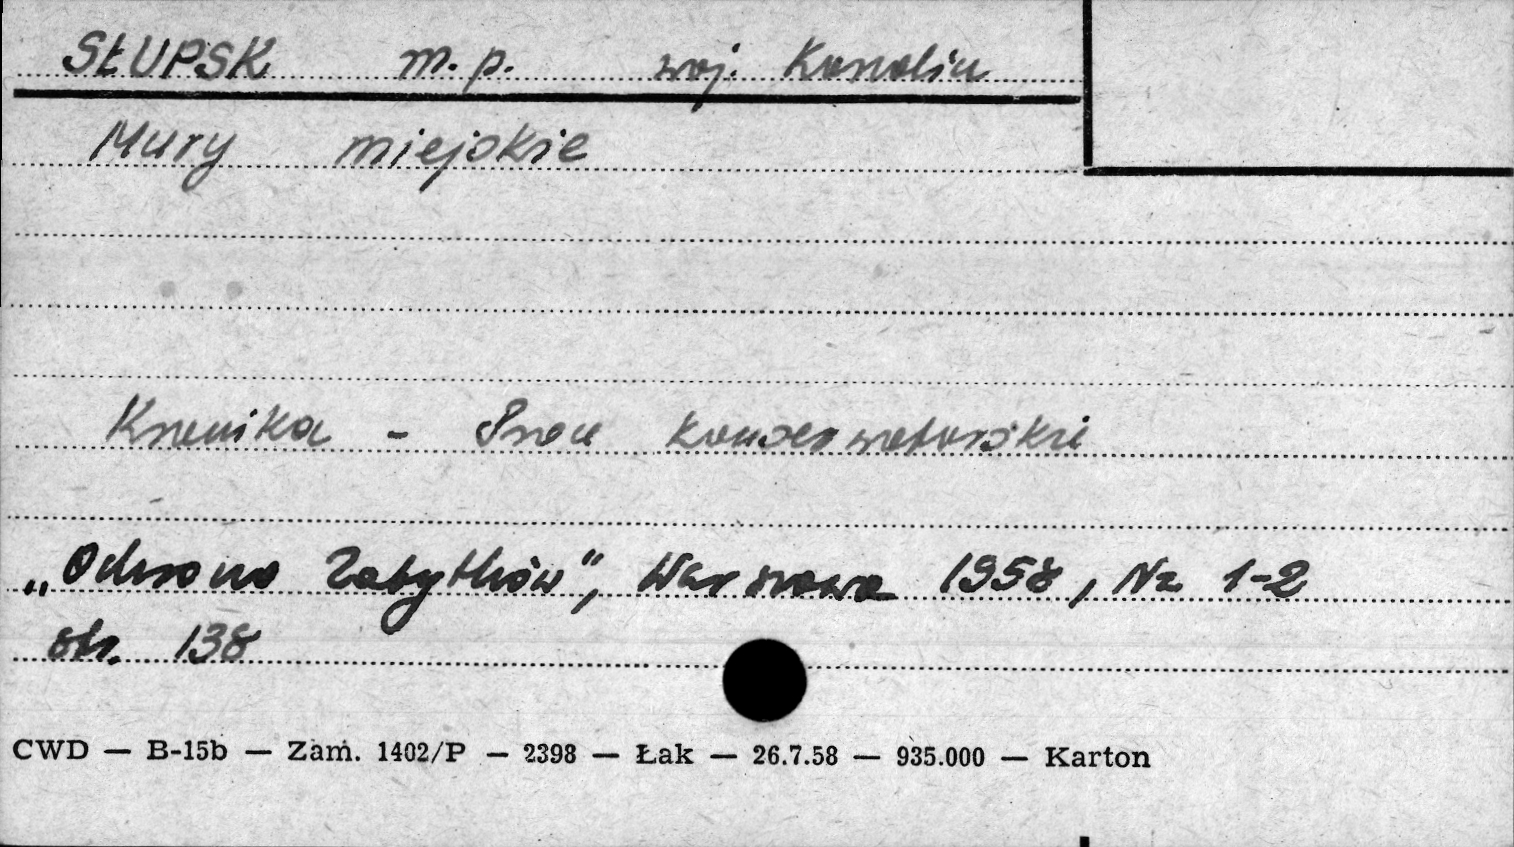 SŁUPSK m.p. woj. Koszalin
Mury miejskie
Kronika - Prace konserwatorskie
„Ochrona Zabytków", Warszawa 1958, Nr 1-2
str. 138
CWD — B-15b — Zam. 1402/P — 2398 — Łak — 26.7.58 — 935.000 — Karton